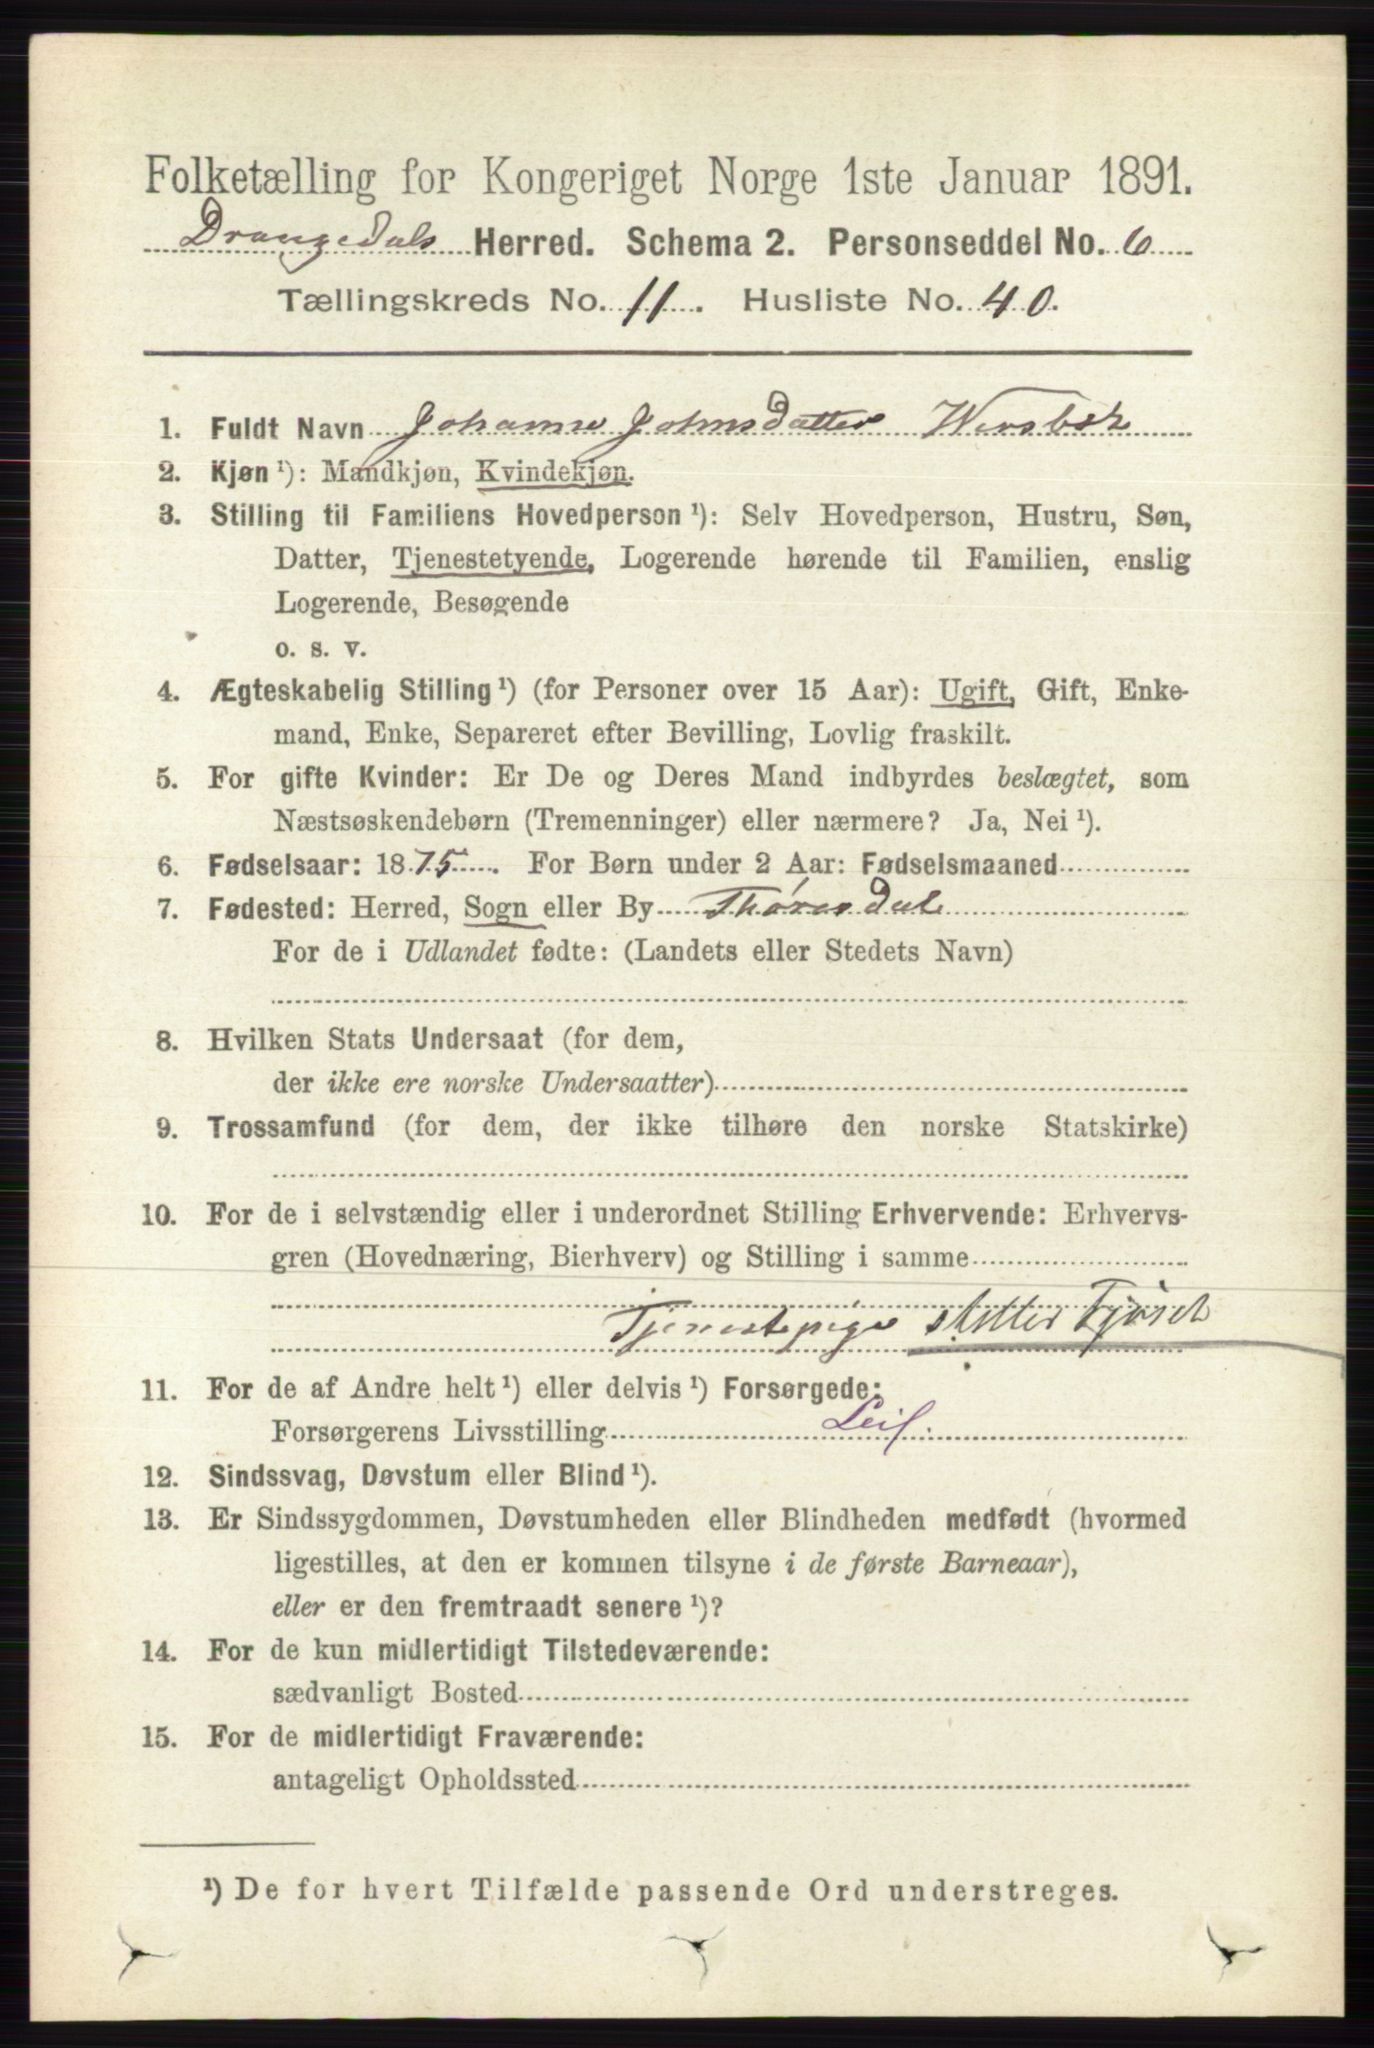 Folketælling for Kongeriget Norge 1ste Januar 1891.
Drangedals Herred. Schema 2. Personseddel No. 6
Tællingskreds No. 11. Husliste No. 40.
1. Fuldt Navn Johanne Johnsdatter
2. Kjøn ¹): Mandkjøn, Kvindekjøn.
3. Stilling til Familiens Hovedperson ¹): Selv Hovedperson, Hustru, Søn,
Datter, Tjenestetyende, Logerende hørende til Familien, enslig
Logerende, Besøgende
o. s. v.
4. Ægteskabelig Stilling ¹) (for Personer over 15 Aar): Ugift, Gift, Enke-
mand, Enke, Separeret efter Bevilling, Lovlig fraskilt.
5. For gifte Kvinder: Er De og Deres Mand indbyrdes beslægtet, som
Næstsøskendebørn (Tremenninger) eller nærmere? Ja, Nei ¹).
6. Fødselsaar: 1875. For Børn under 2 Aar: Fødselsmaaned
7. Fødested: Herred, Sogn eller By Thørisdal
For de i Udlandet fødte: (Landets eller Stedets Navn)
8. Hvilken Stats Undersaat (for dem,
der ikke ere norske Undersaatter)
9. Trossamfund (for dem, der ikke tilhøre den norske Statskirke)
10. For de i selvstændig eller i underordnet Stilling Erhvervende: Erhvervs-
gren (Hovednæring, Bierhverv) og Stilling i samme
Tjenestepige steller Fjøset
11. For de af Andre helt ¹) eller delvis ¹) Forsørgede:
Forsørgerens Livsstilling Leil.
12. Sindssvag, Døvstum eller Blind ¹).
13. Er Sindssygdommen, Døvstumheden eller Blindheden medfødt (hvormed
ligestilles, at den er kommen tilsyne i de første Barneaar),
eller er den fremtraadt senere ¹)?
14. For de kun midlertidigt Tilstedeværende:
sædvanligt Bosted
15. For de midlertidigt Fraværende:
antageligt Opholdssted
¹) De for hvert Tilfælde passende Ord understreges.